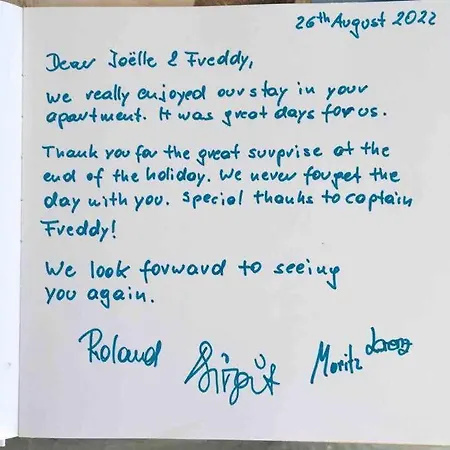 26th August 2022
Dear Joëlle & Freddy,
we really enjoyed our stay in your
apartment. It was great days for us.
Thank you for the great surprise at the
end of the holiday. We never forget the
day with you. Special thanks to captain
Freddy!
We look forward to seeing
you again.
Roland Birgit Moritz